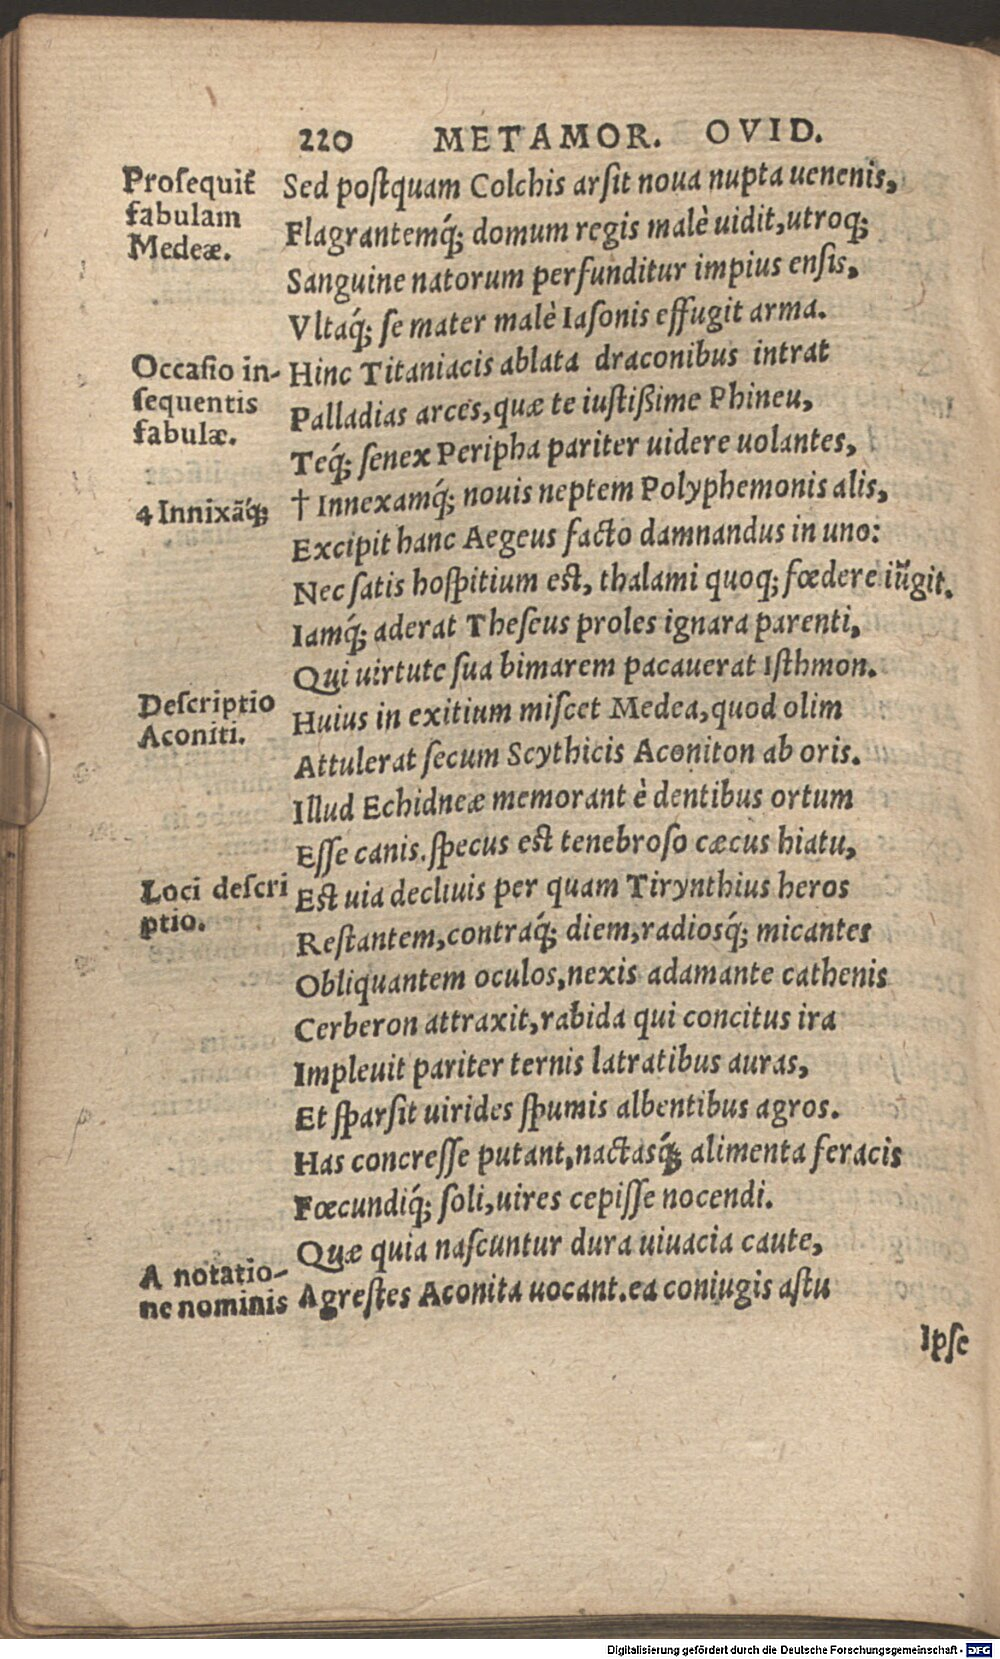 220 METAMOR. OVID.
Prosequit̃
fabulam
Medeæ.
Sed postquam Colchis arsit noua nupta uenenis,
Flagrantemq́; domum regis malè uidit, utroq;
Sanguine natorum perfunditur impius ensis,
Vltaq́; se mater malè Iasonis effugit arma.
Occasio in-
sequentis
fabulæ.
Hinc Titaniacis ablata draconibus intrat
Palladias arces, quæ te iustißime Phineu,
Teq́; senex Peripha pariter uidere uolantes,
4 Innixãq́;
† Innexamq́; nouis neptem Polyphemonis alis,
Excipit hanc Aegeus facto damnandus in uno:
Nec satis hospitium est, thalami quoq; fœdere iũgit.
Iamq́; aderat Theseus proles ignara parenti,
Qui uirtute sua bimarem pacauerat Isthmon.
Descriptio
Aconiti.
Huius in exitium miscet Medea, quod olim
Attulerat secum Scythicis Aconiton ab oris.
Illud Echidneæ memorant è dentibus ortum
Esse canis. specus est tenebroso cæcus hiatu,
Loci descri
ptio.
Est uia decliuis per quam Tirynthius heros
Restantem, contraq́; diem, radiosq́; micantes
Obliquantem oculos, nexis adamante cathenis
Cerberon attraxit, rabida qui concitus ira
Impleuit pariter ternis latratibus auras,
Et sparsit uirides spumis albentibus agros.
Has concresse putant, nactasq́; alimenta feracis
Fœcundiq́; soli, uires cepisse nocendi.
Quæ quia nascuntur dura uiuacia caute,
A notatio-
ne nominis
Agrestes Aconita uocant. ea coniugis astu
Ipse
Digitalisierung gefördert durch die Deutsche Forschungsgemeinschaft - DFG